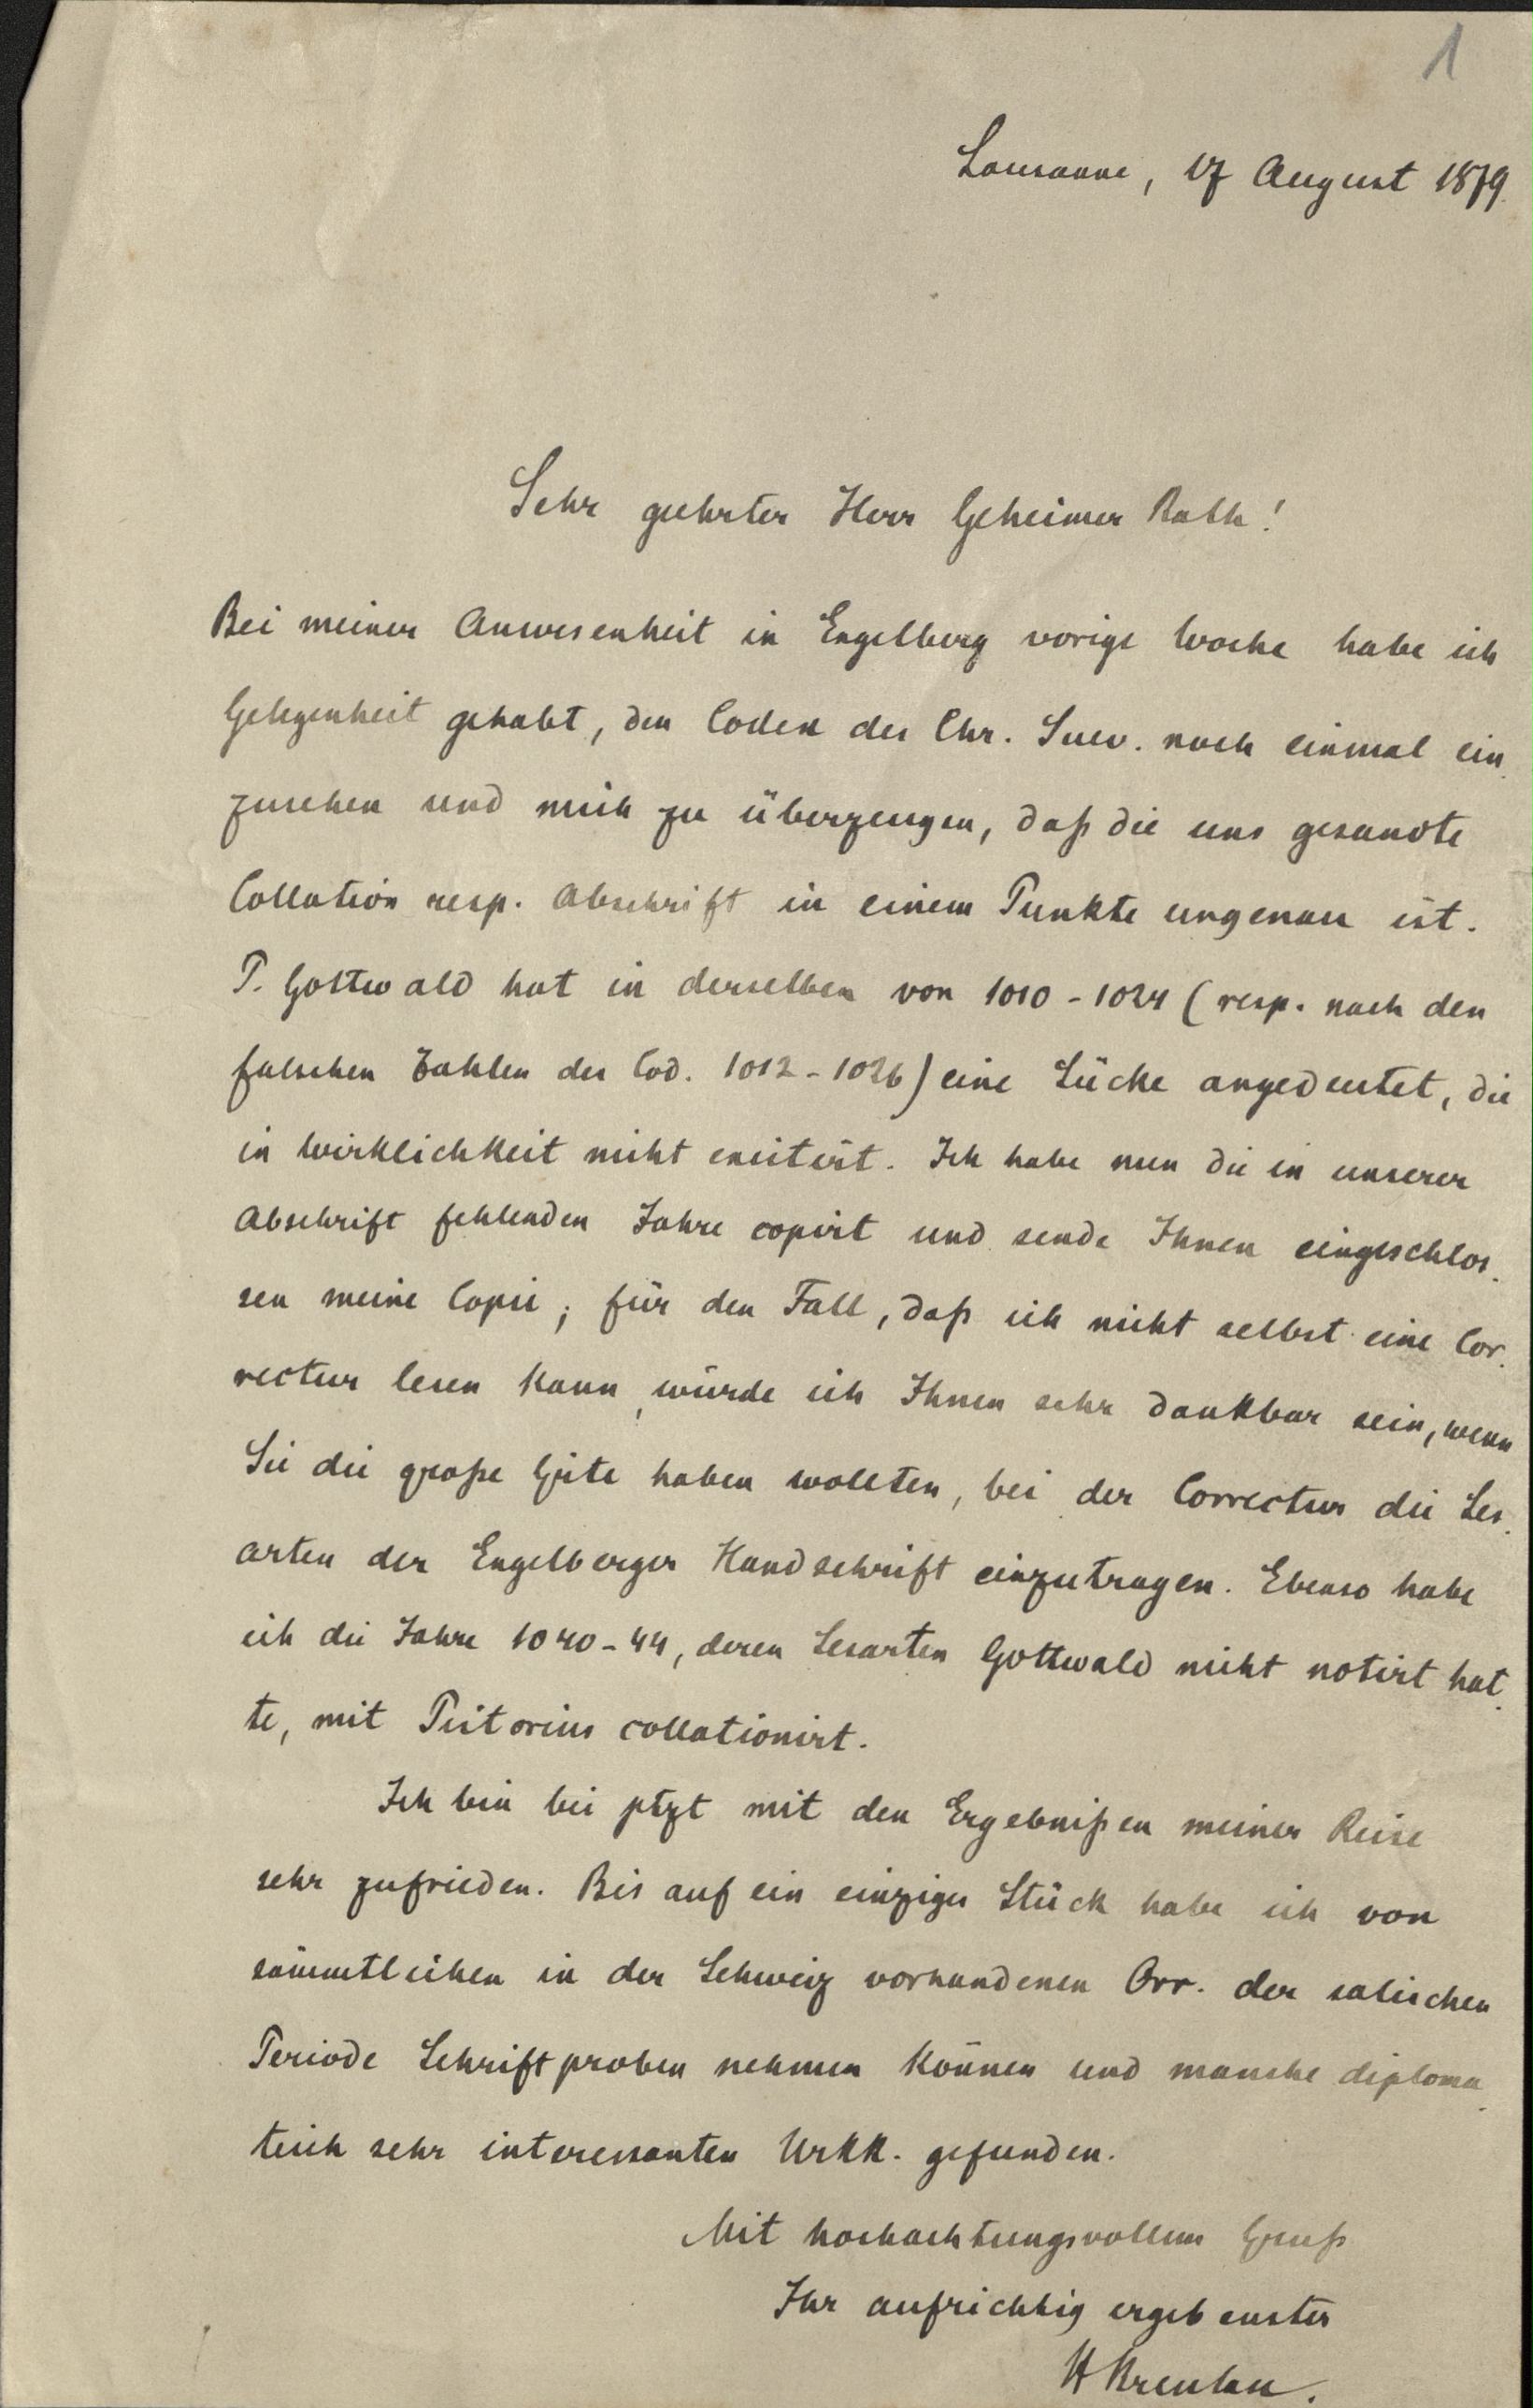 1
Lausanne, 17 August 1879.
Sehr geehrter Herr Geheimer Rath!
Bei meiner Anwesenheit in Engelberg vorige Woche habe ich
Gelegenheit gehabt, den Codex des Chr. Suev. noch einmal ein-
zusehen und mich zu überzeugen, daß die uns gesandte
Collation resp. Abschrift in einem Punkte ungenau ist.
P. Gottwald hat in derselben von 1010-1024 (resp. nach den
falschen Zahlen des Cod. 1012-1026) eine Lücke angedeutet, die
in Wirklichkeit nicht existirt. Ich habe nun die in unserer
Abschrift fehlenden Jahre copirt und sende Ihnen eingeschlos-
sen meine Copie; für den Fall, daß ich nicht selbst eine Cor-
rectur lesen kann, würde ich Ihnen sehr dankbar sein, wenn
Sie die große Güte haben wollten, bei der Correctur die Les-
arten der Engelberger Handschrift einzutragen. Ebenso habe
ich die Jahre 1040-44, deren Lesarten Gottwald nicht notirt hat-
te, mit Pistorius collationirt.
Ich bin bis jetzt mit den Ergebnißen meiner Reise
sehr zufrieden. Bis auf ein einziges Stück habe ich von
sämmtlichen in der Schweiz vorhandenen Orr. der salischen
Periode Schriftproben nehmen können und manche diploma-
tisch sehr interessanten Urkk. gefunden.
Mit hochachtungsvollem Gruß
Ihr aufrichtig ergebenster
H Bresslau.